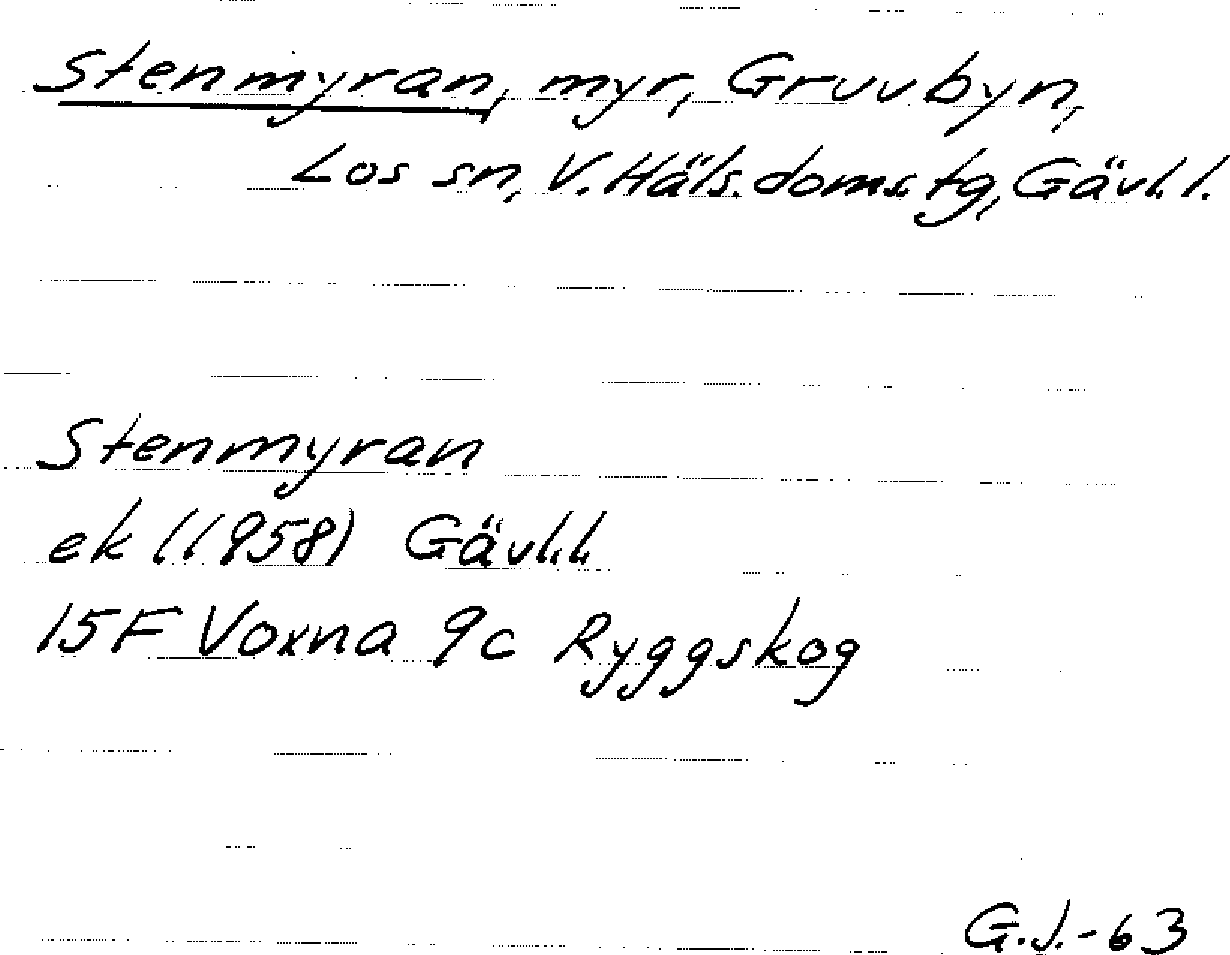 Stenmyran, myr, Gruvbyn,
Los sn, V. Häls. doms. tg, Gävl. l.
Stenmyran
ek (1958) Gävl.l.
15F Voxna 9c Ryggskog
G.J.-63